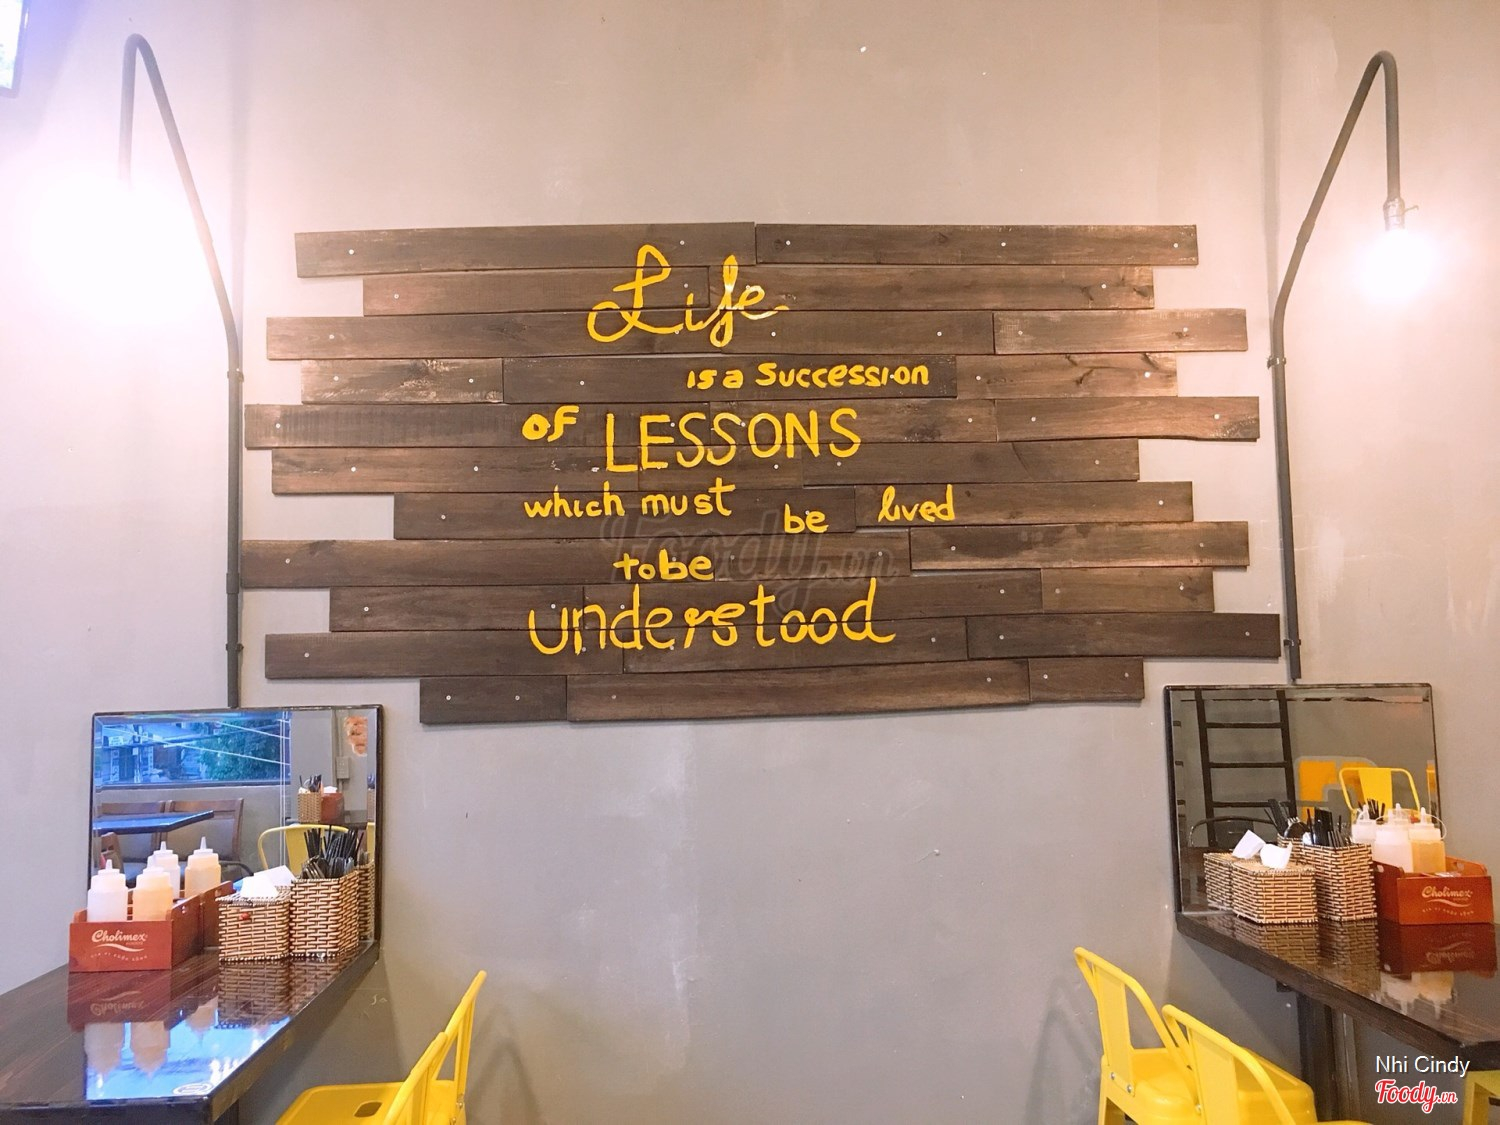 Life
is a Succession
of LESSONS
which must be lived
to be
understood
Foody.vn
Cholimex
Cholimex
Nhi Cindy
Foody.vn